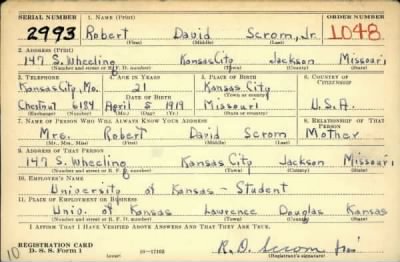 SERIAL NUMBER 1. NAME (Print) ORDER NUMBER
2993 Robert David Scrom, Jr. 1048
(First) (Middle) (Last)
2. ADDRESS (Print)
147 S. Wheeling Kansas City Jackson Missouri
(Number and street or R. F. D. number) (Town) (County) (State)
3. TELEPHONE 4. AGE IN YEARS 5. PLACE OF BIRTH 6. COUNTRY OF CITIZENSHIP
Kansas City, Mo. 21 Kansas City
DATE OF BIRTH (Town or county)
Chestnut 6184 April 5 1919 Missouri U.S.A.
(Exchange) (Number) (Mo.) (Day) (Yr.) (State or country)
7. NAME OF PERSON WHO WILL ALWAYS KNOW YOUR ADDRESS 8. RELATIONSHIP OF THAT PERSON
Mrs. Robert David Scrom Mother
(Mr., Mrs., Miss) (First) (Middle) (Last)
9. ADDRESS OF THAT PERSON
147 S. Wheeling Kansas City Jackson Missouri
(Number and street or R. F. D. number) (Town) (County) (State)
10. EMPLOYER'S NAME
University of Kansas - Student
11. PLACE OF EMPLOYMENT OR BUSINESS
Univ. of Kansas Lawrence Douglas Kansas
(Number and street or R. F. D. number) (Town) (County) (State)
I AFFIRM THAT I HAVE VERIFIED ABOVE ANSWERS AND THAT THEY ARE TRUE.
REGISTRATION CARD
D. S. S. Form 1 R. D. Scrom
(over) (Registrant's signature)
10